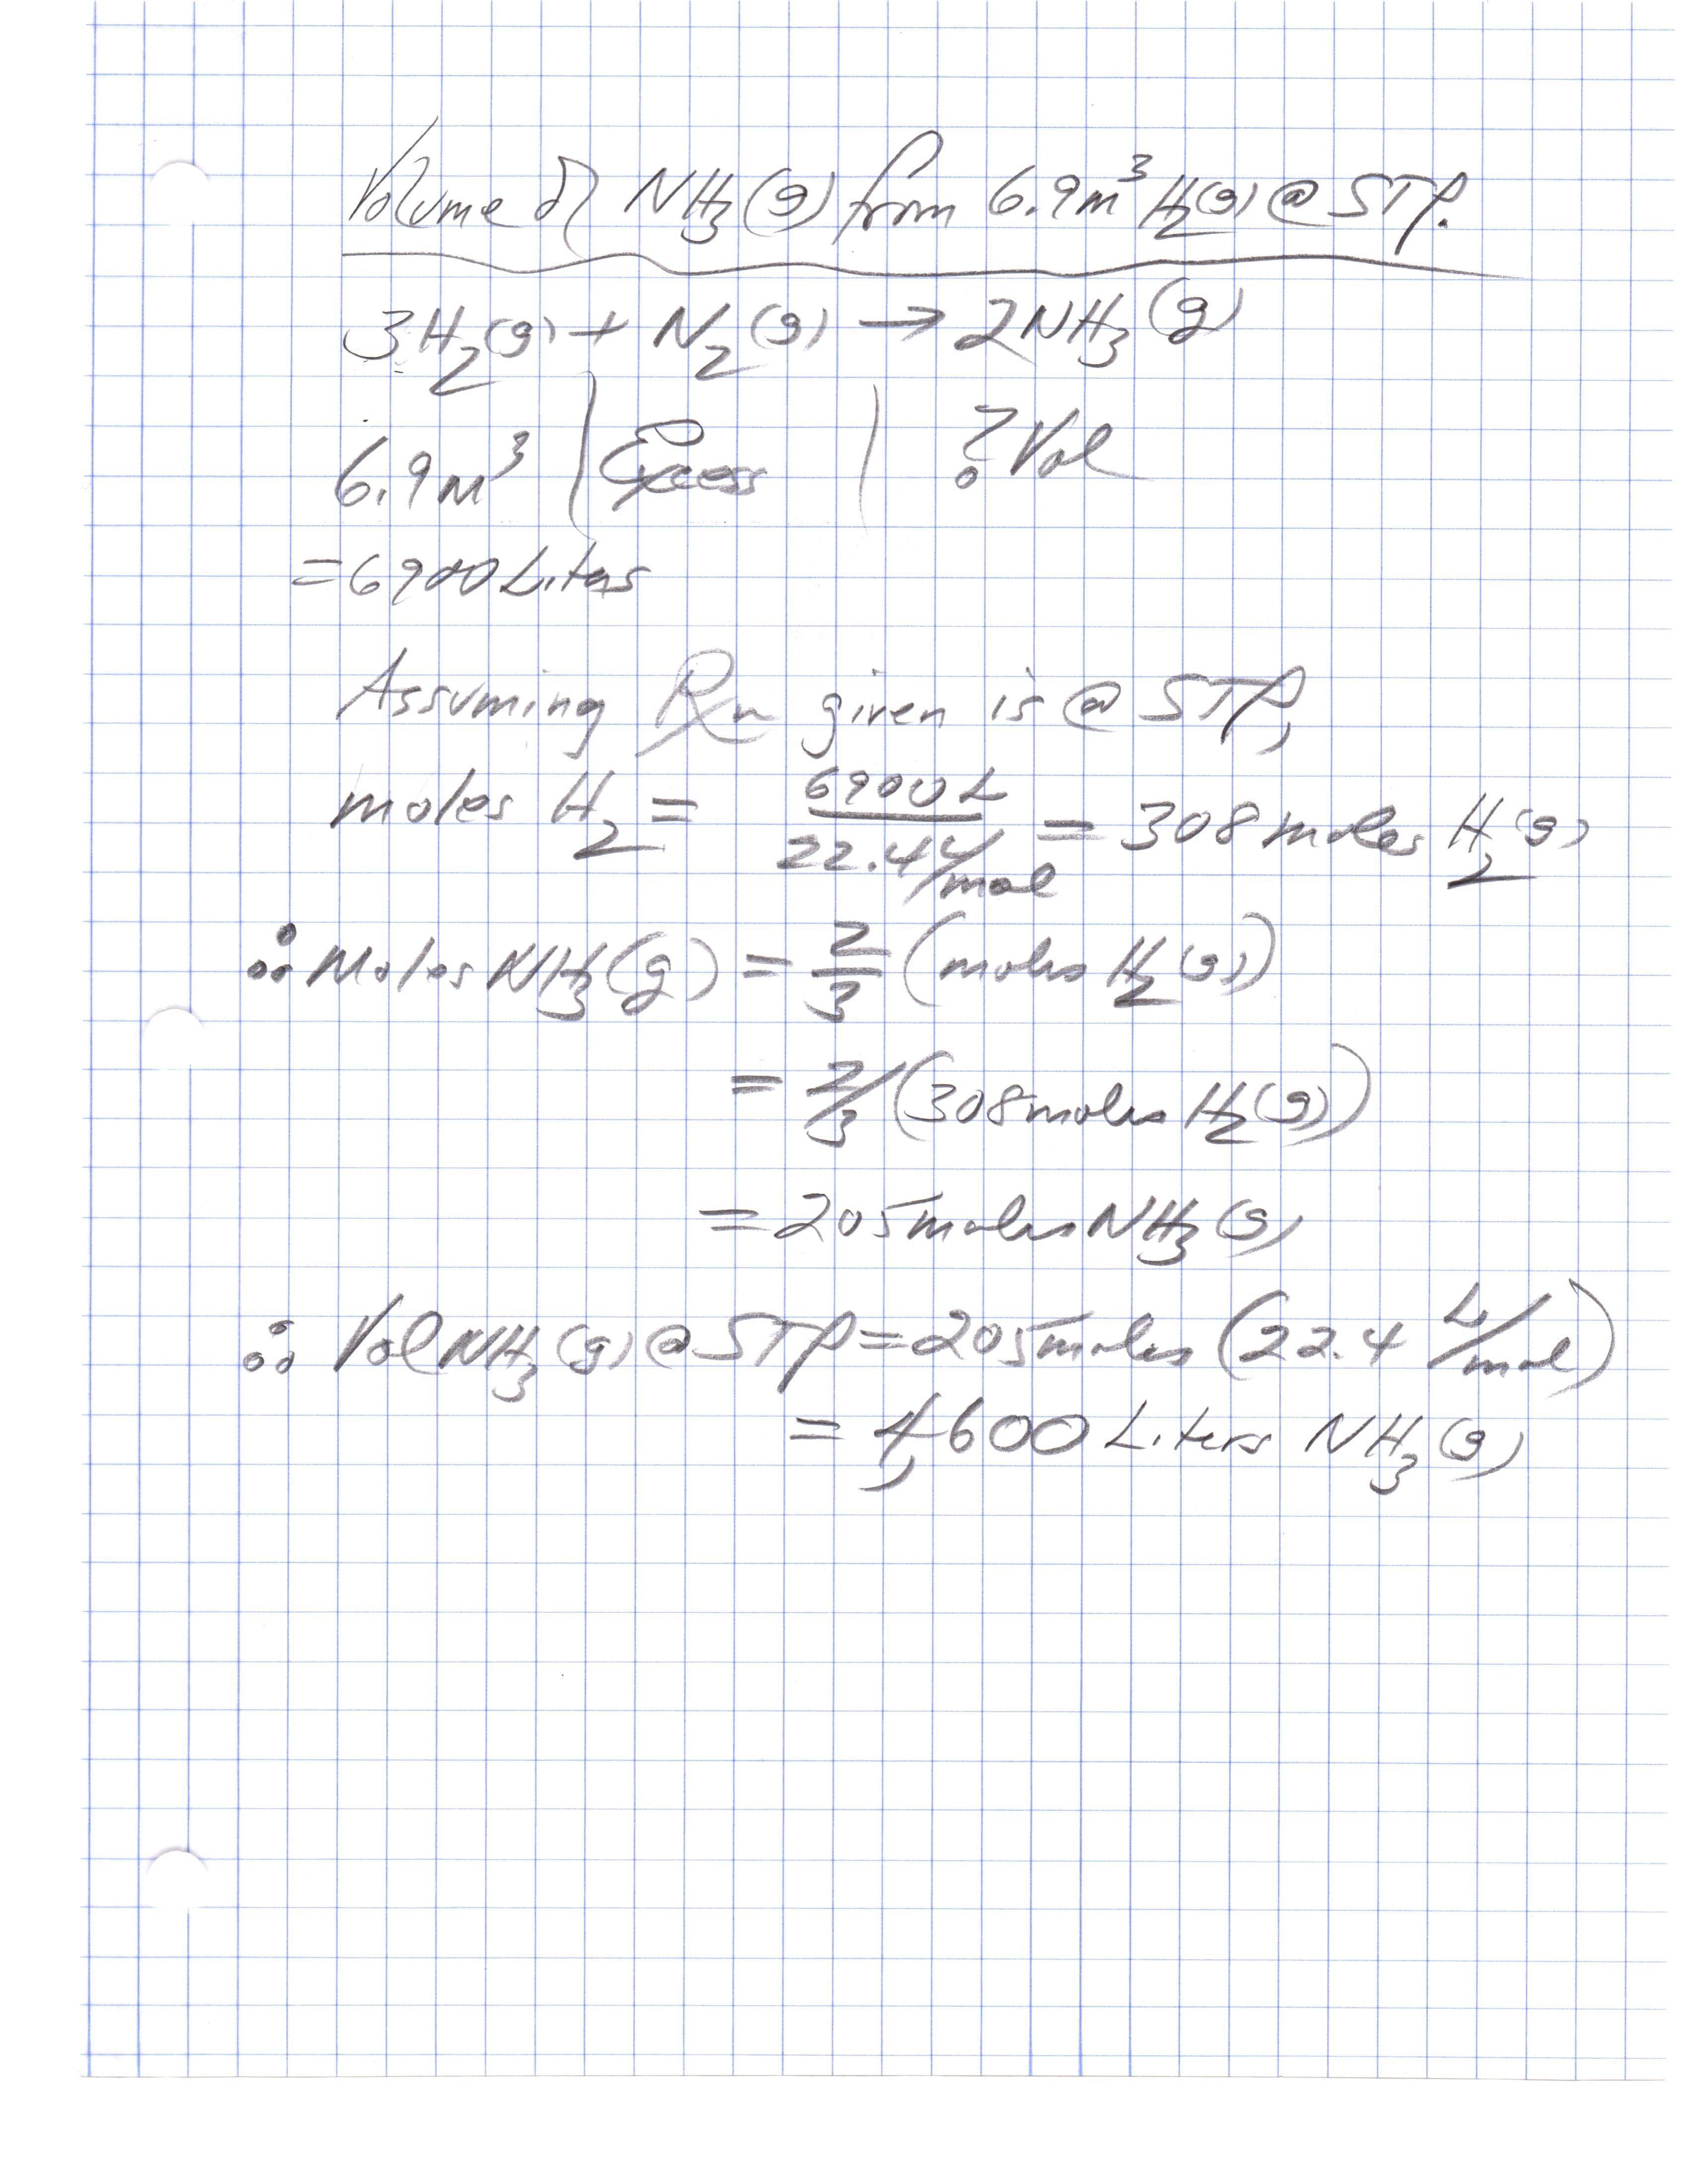 Volume of NH₃(g) from 6.9m³ H₂(g) @ STP.
3H₂(g) + N₂(g) → 2NH₃(g)
6.9m³ | Excess | ? Vol
= 6900 Liters
Assuming Rxn given is @ STP,
moles H₂ = 6900 L / 22.4 L/mol = 308 moles H₂(g)
∴ Moles NH₃(g) = 2/3 (moles H₂(g))
= 2/3 (308 moles H₂(g))
= 205 moles NH₃(g)
∴ Vol NH₃(g) @ STP = 205 moles (22.4 L/mol)
= 4,600 Liters NH₃(g)